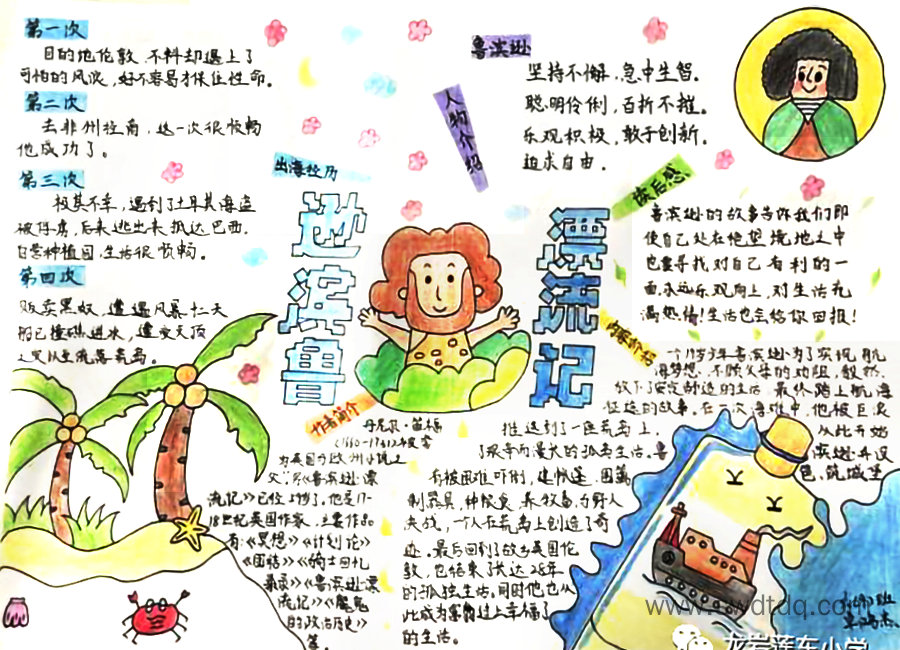 第一次
目的地伦敦,不料却遇上了
可怕的风浪,好不容易才保住性命。
第二次
去非州经商,这一次很顺畅
他成功了。
第三次
极其不幸,遇到了土耳其海盗
被俘虏,后来逃出来抵达巴西,
自营种植园,生活很顺畅。
第四次
贩卖黑奴,遭遇风暴十二天
船已撞礁进水,遭受灭顶
之灾
流落荒岛。
出海经历
鲁滨逊
漂流记
人物介绍
鲁滨逊
坚持不懈,急中生智。
聪明伶俐,百折不摧。
乐观积极,敢于创新。
追求自由。
读后感
鲁滨逊的故事告诉我们即
使自己处在绝望境地之中
也要寻找对自己有利的一
面,永远乐观向上,对生活充
满热情!生活也会给你回报!
内容介绍
一个
少年鲁滨逊为了实现航
海梦想,不顾父母的劝阻,毅然
放下了安定舒适的生活,最终踏上航海
征途的故事。在一次海难中,他被巨浪
推送到了一座荒岛上,从此开始
了艰辛而漫长的孤岛生活。鲁滨逊并没
有被困难吓倒,建帐篷,围篱
制器具,种粮食,养牧畜,与野人
决战,一个人在荒岛上创造了奇
迹,最后回到了故乡英国伦
敦,也结束了长达28年
的孤独生活,同时他也从
此成为富翁过上幸福了
的生活。
作者简介
丹尼尔·笛福
(1660-1731)被誉
为英国与欧洲小说之
父,
《鲁滨逊漂
流记》已经
他是17-
18世纪英国作家,主要作品
有:《冥想》《计划论》
《团结》《骑士回忆
录》《鲁滨逊漂
流记》《魔鬼
的政治历史》
等。
班
www.
wdtdq.com
龙岩莲东小学